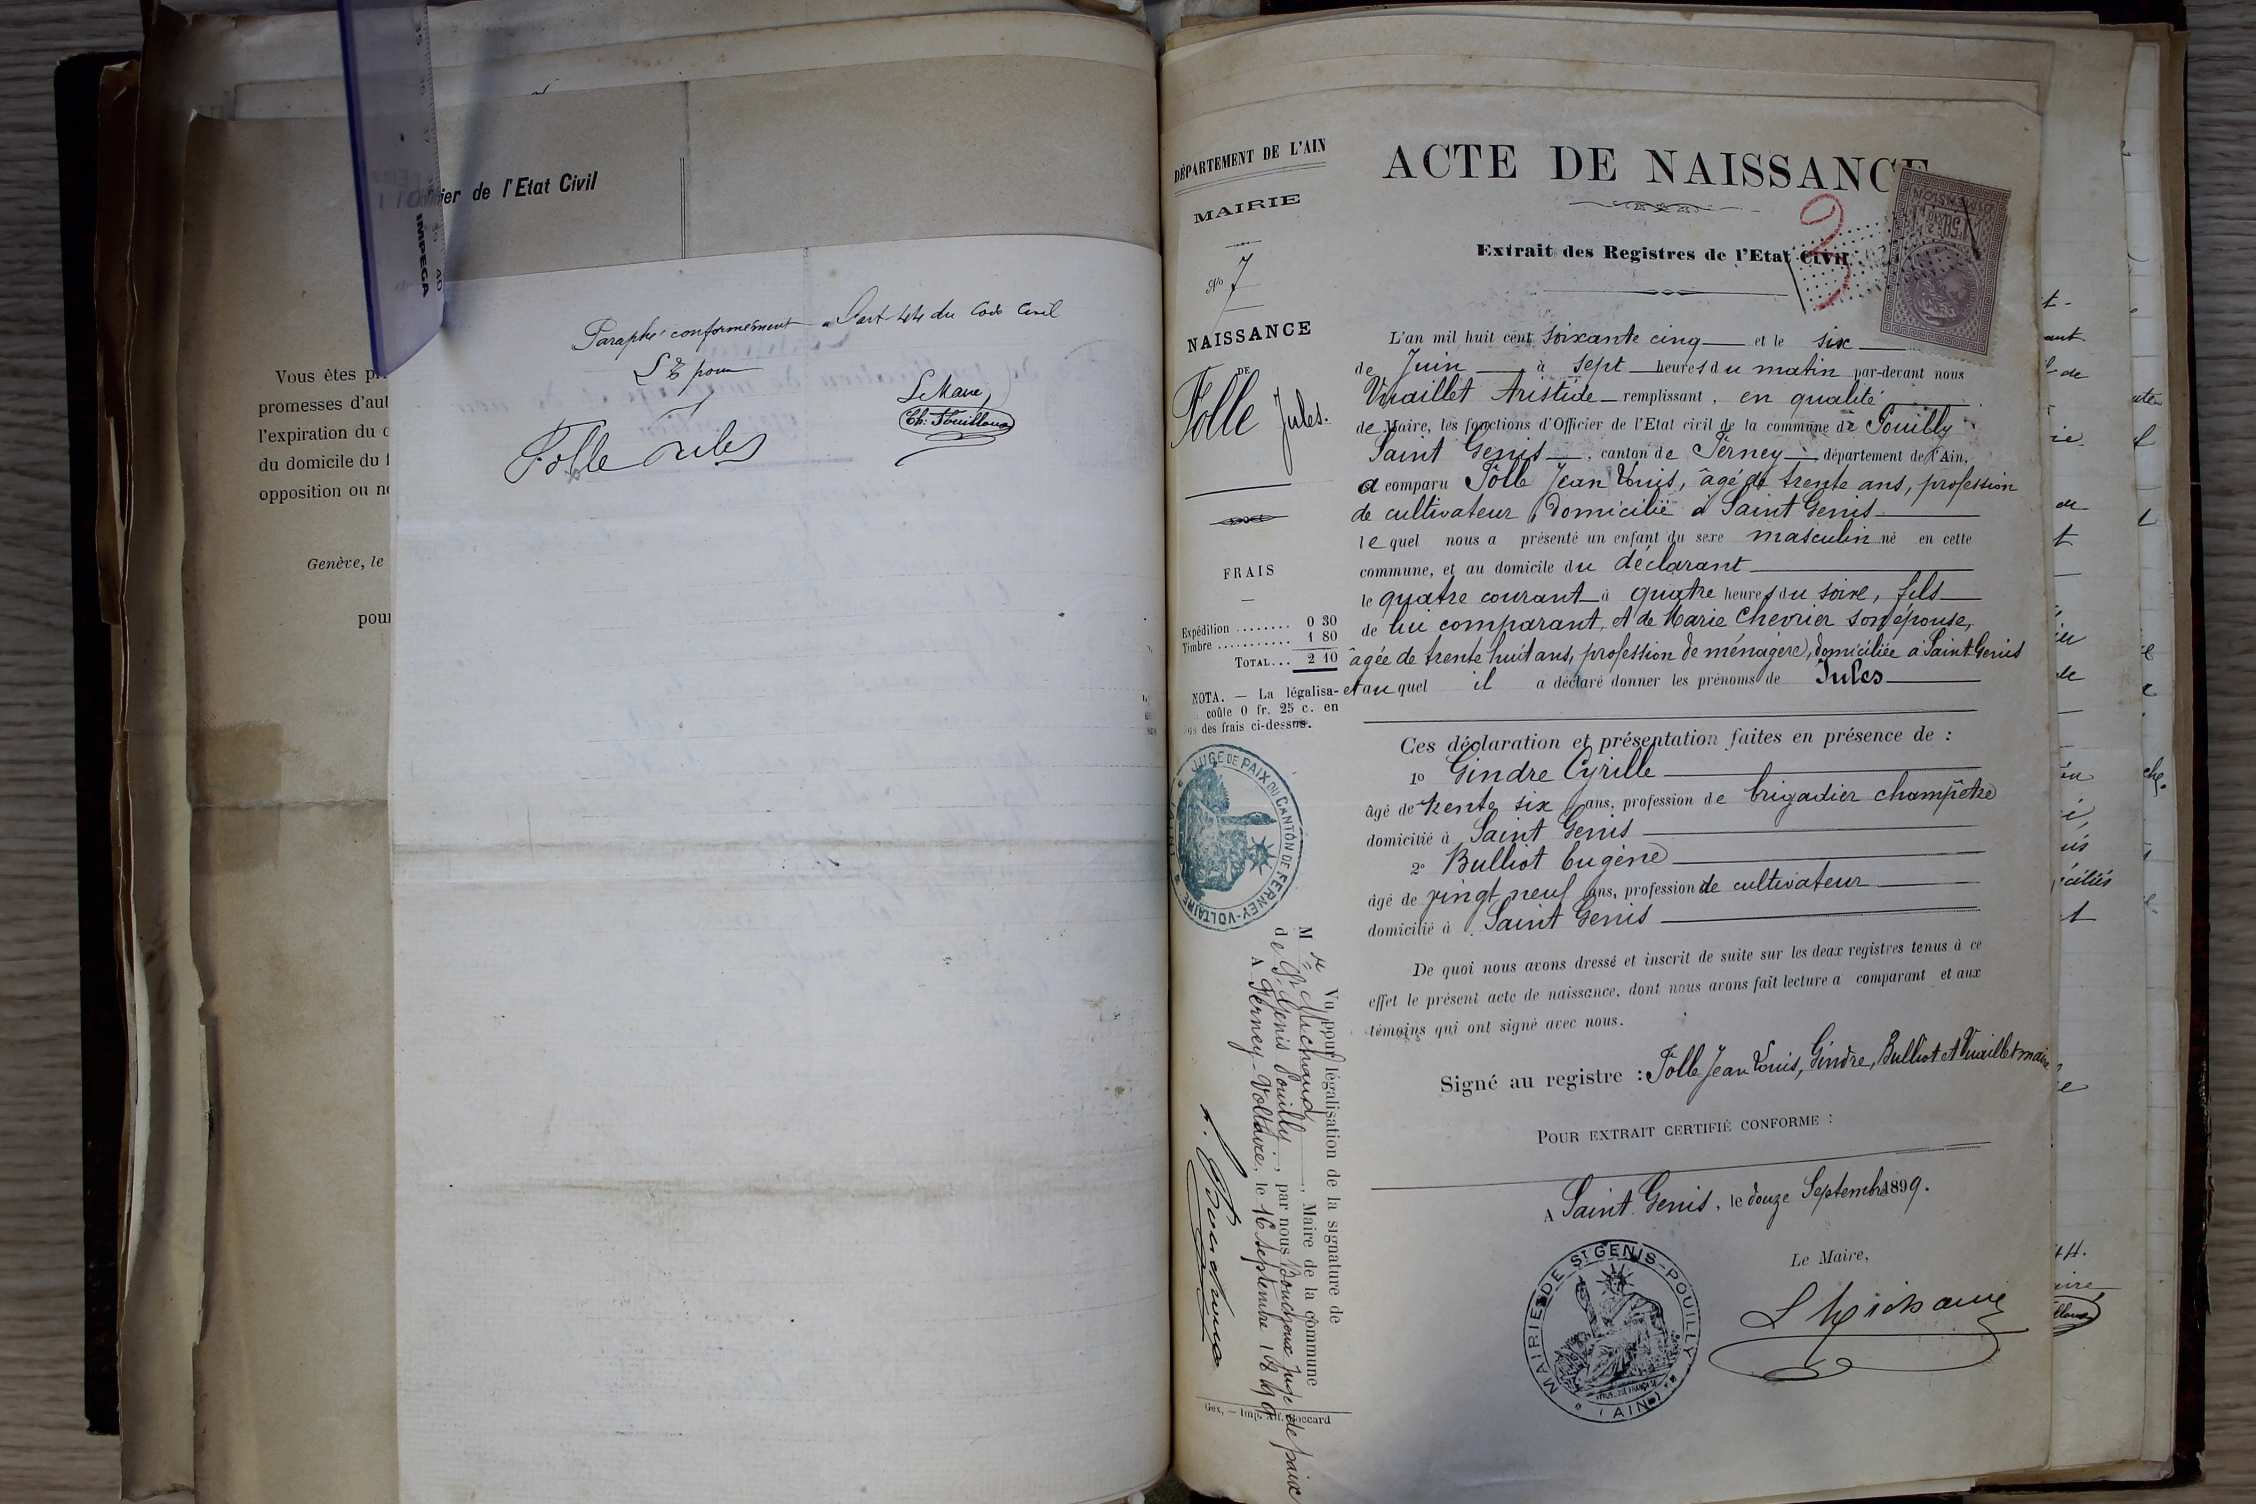 de l'Etat Civil
IMPEGA
Vous êtes
promesses d'aut
l'expiration du
du domicile du
opposition ou
Genève, le
pour
Paraphé conformément a l'art 44 du Code Civil
L'Epoux
Le Maire,
Folle Jules
DÉPARTEMENT DE L'AIN
MAIRIE
No 7
NAISSANCE
DE
Folle Jules.
FRAIS
Expédition ........ 0 30
Timbre ........... 1 80
TOTAL... 2 10
NOTA. — La légalisa-
coûte 0 fr. 25 c. en
des frais ci-dessus.
JUGE DE PAIX DU CANTON DE FERNEY-VOLTAIRE
Vu pour légalisation de la signature de
M Michaud, Maire de la commune
de St Genis Pouilly, par nous Bouchoux Juge de paix
A Ferney-Voltaire, le 16 Septembre 1899
Gex, — Imp.
ACTE DE NAISSANCE
Extrait des Registres de l'Etat Civil
L'an mil huit cent soixante cinq et le six
de Juin à sept heures du matin par-devant nous
Vuaillet Aristide remplissant, en qualité
de Maire, les fonctions d'Officier de l'Etat civil de la commune de Pouilly
Saint Genis, canton de Ferney, département de l'Ain,
a comparu Folle Jean Louis, âgé de trente ans, profession
de cultivateur, domicilié à Saint Genis
lequel nous a présenté un enfant du sexe masculin né en cette
commune, et au domicile du déclarant
le quatre courant à quatre heures du soire, fils
de lui comparant, et de Marie Chevrier son épouse,
âgée de trente huit ans, profession de ménagère, domiciliée à Saint Genis
et auquel il a déclaré donner les prénoms de Jules
Ces déclaration et présentation faites en présence de :
1o Gindre Cyrille
âgé de trente six ans, profession de brigadier champêtre
domicilié à Saint Genis
2o Bulliot Eugène
âgé de vingt neuf ans, profession de cultivateur
domicilié à Saint Genis
De quoi nous avons dressé et inscrit de suite sur les deux registres tenus à ce
effet le présent acte de naissance, dont nous avons fait lecture a comparant et aux
témoins qui ont signé avec nous.
Signé au registre : Folle Jean Louis, Gindre, Bulliot et Vuaillet maire
POUR EXTRAIT CERTIFIÉ CONFORME :
A Saint Genis, le douze Septembre 1899.
Le Maire,
L Michaud
MAIRIE DE ST GENIS-POUILLY (AIN)